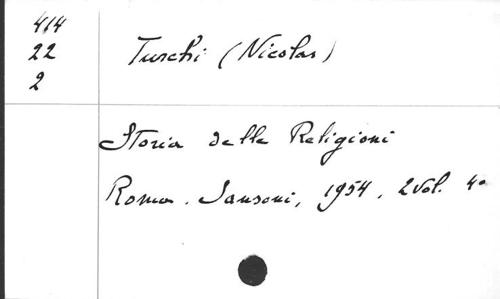 414
22
2
Turchi (Nicolas)
Storia delle Religioni
Roma. Sansoni, 1954, 2 Vol. 4°